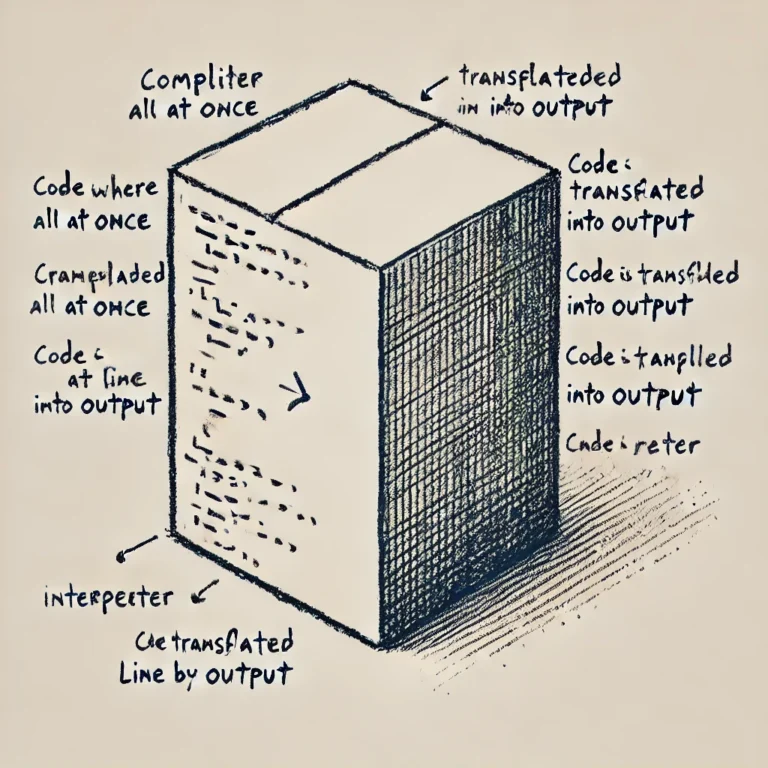 Compliter
all at once
transflateded
in into output
Code where
all at once
Crampuladed
all at once
Code:
at line
into output
Code:
transflated
into output
Code is transfilded
into output
Code is tranplled
into output
Cnde reter
interpecter
Cae transflated
Line by output